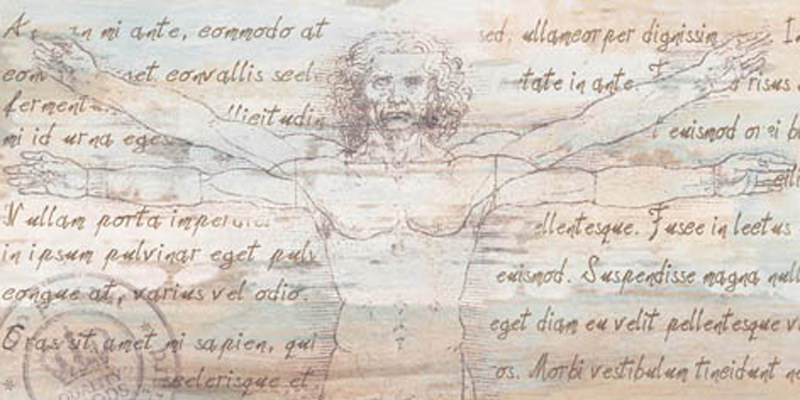 in mi ante, commodo at
convallis scel
ferment
llicitudin
mi id urna eges
Nullam porta imper
in ipsum pulvinar eget pulv
congue at, varius vel odio.
Cras sit amet mi sapien, qui
scelerisque et
sed, ullamcorper dignissim
tate in ante.
risus
euismod orci b
ellentesque. Fusce in lectus
euismod. Suspendisse magna null
eget diam eu velit pellentesque v
os. Morbi vestibulum tincidunt ne